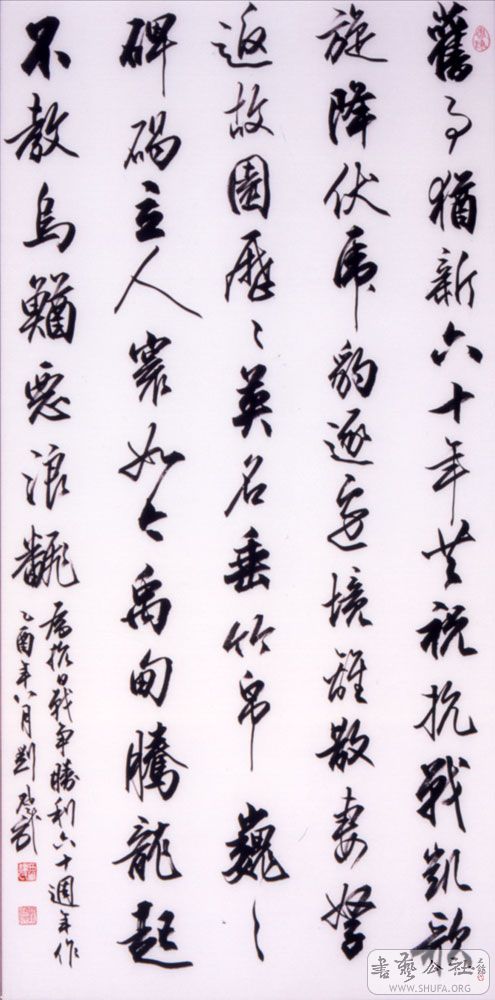 舊事猶新六十年共祝抗戰凱歌
旋降伏虎豹逐邊境離散妻孥
返故園歷々英名垂竹帛巍々
碑碣立人寰如今禹甸騰龍起
不教烏鰌惡浪飜
為抗日戰爭勝利六十週年作
乙酉年八月劉
書藝公社
WWW.SHUFA.ORG